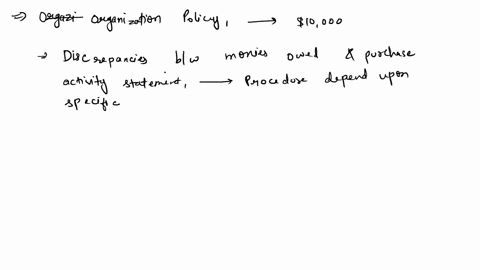 ⇒ Orgazi Organization Policy, → $10,000
→ Discrepancies b/w monies owed & purchase
activity statement, → Procedure depend upon
specific